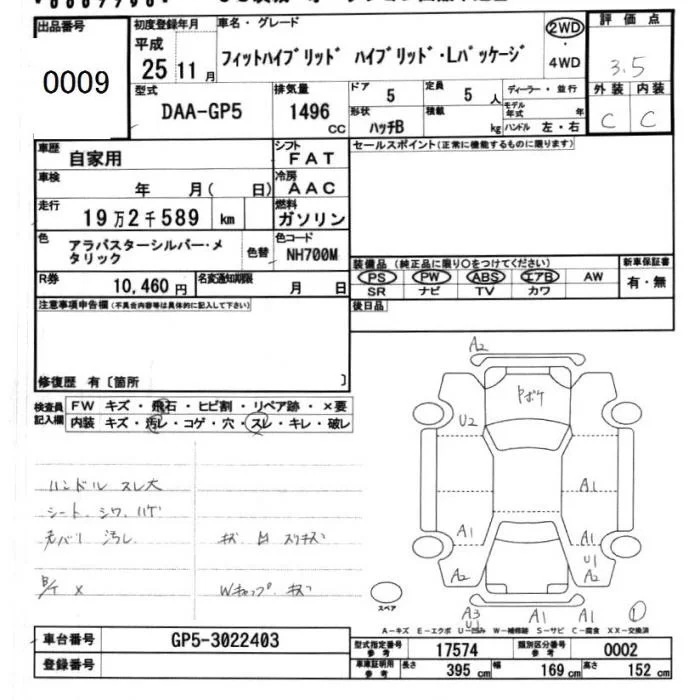 出品番号
0009
初度登録年月
平成
25 11 月
車名・グレード
フィットハイブリッド ハイブリッド・Lパッケージ
2WD
・
4WD
評価点
3.5
外装 内装
C C
型式
DAA-GP5
排気量
1496
CC
ドア
5
定員
5 人
形状
ハッチB
積載
kg
ディーラー・並行
モデル年式 年
ハンドル 左・右
車歴
自家用
シフト
FAT
車検
年 月( 日)
冷房
AAC
走行
19万2千589 km
燃料
ガソリン
色
アラバスターシルバー・メ
タリック
色替
色コード
NH700M
R券
10,460 円
名変通知期限
月 日
セールスポイント(正常に機能するものに限ります)
装備品 (純正品に限り〇をつけてください)
PS PW ABS エアB AW
SR ナビ TV カワ
新車保証書
有・無
後日品
注意事項申告欄(不具合内容等は具体的に記入して下さい)
修復歴 有〔箇所 〕
検査員
記入欄
FW キズ・飛石・ヒビ割・リペア跡・×要
内装 キズ・汚レ・コゲ・穴・スレ・キレ・破レ
ハンドル スレ大
シート、シワ、ハゲ
汚レ
キズ
Wキャップ キズ
A2
U2
A1
A1
A1
U1
A2
A2
A3
U1
A1
A1
①
スペア
A-キズ E-エクボ U-凹み W-補修跡 S-サビ C-腐食 XX-交換済
車台番号
GP5-3022403
登録番号
型式指定番号
参考
17574
類別区分番号
参考
0002
車庫証明用
参考
長さ 395 cm 幅 169 cm 高さ 152 cm